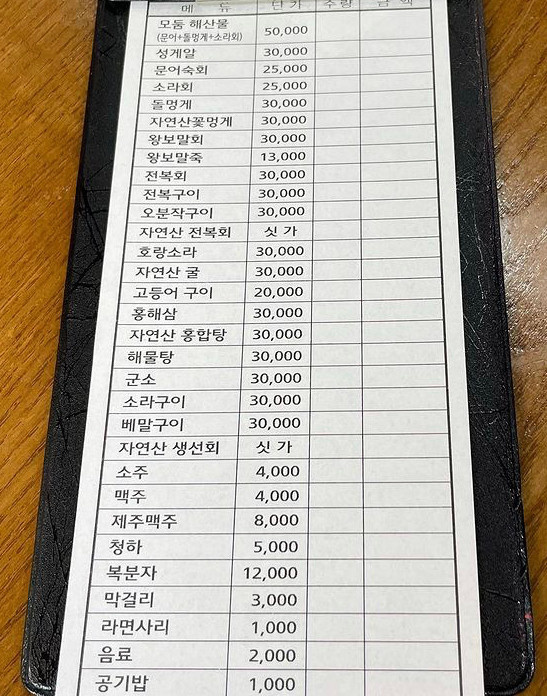 메 뉴 단 가 수 량 금 액
모둠 해산물 50,000
(문어+돌멍게+소라회)
성게알 30,000
문어숙회 25,000
소라회 25,000
돌멍게 30,000
자연산꽃멍게 30,000
왕보말회 30,000
왕보말죽 13,000
전복회 30,000
전복구이 30,000
오분작구이 30,000
자연산 전복회 싯 가
호랑소라 30,000
자연산 굴 30,000
고등어 구이 20,000
홍해삼 30,000
자연산 홍합탕 30,000
해물탕 30,000
군소 30,000
소라구이 30,000
베말구이 30,000
자연산 생선회 싯 가
소주 4,000
맥주 4,000
제주맥주 8,000
청하 5,000
복분자 12,000
막걸리 3,000
라면사리 1,000
음료 2,000
공기밥 1,000